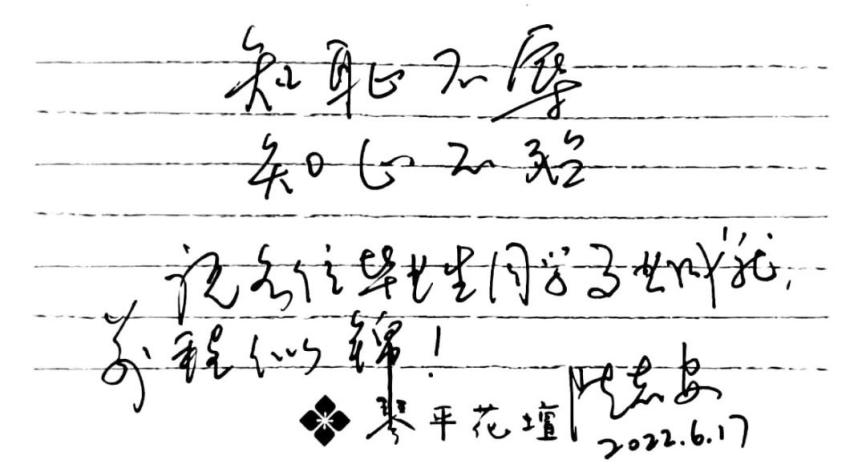 知耻不辱
知止不殆
祝各位毕业生同学学业成就,
前程似锦!
琴平花壇
2022.6.17